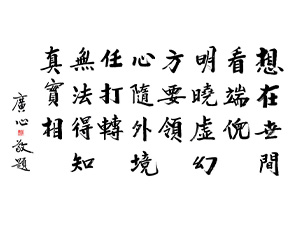 想在世間
看端倪
明曉虛幻
方要領
心隨外境
任打轉
無法得知
真實相
廣心敬題